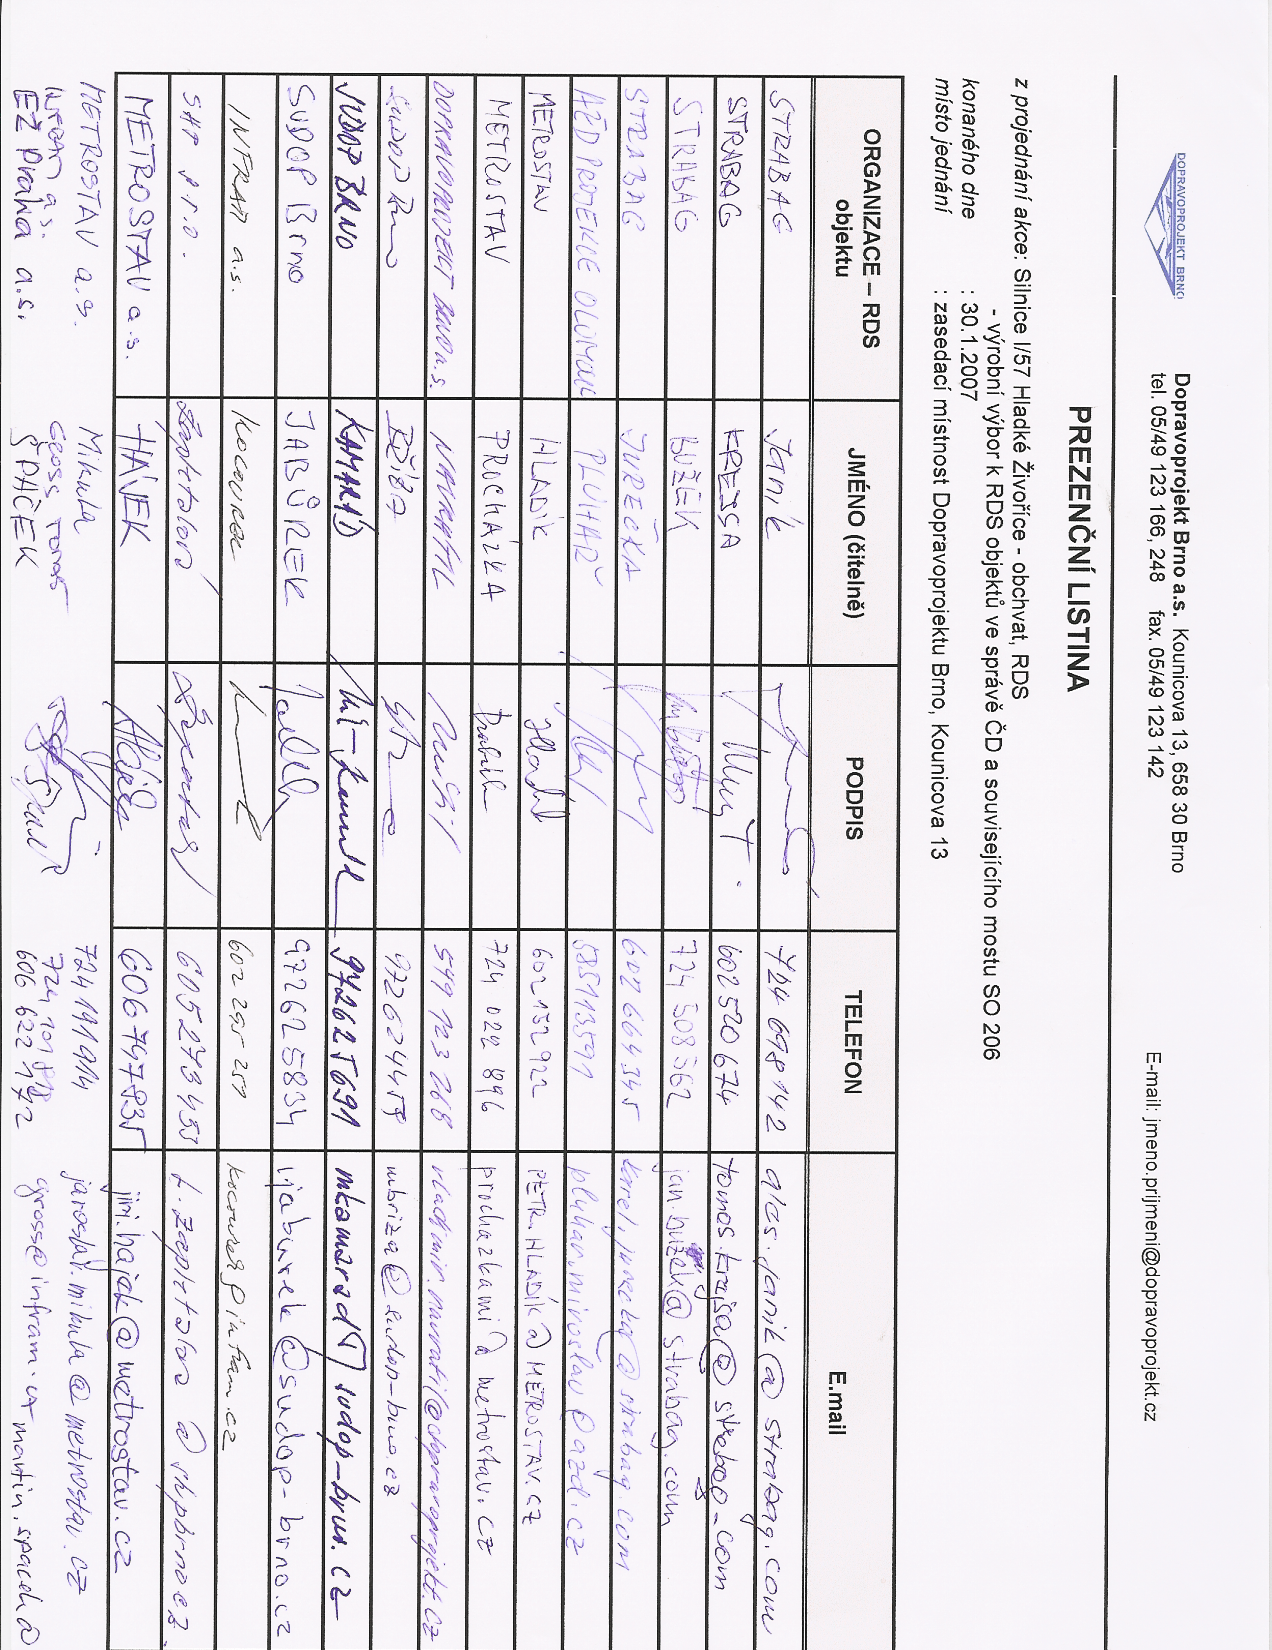 DOPRAVOPROJEKT BRNO
Dopravoprojekt Brno a.s. Kounicova 13, 658 30 Brno
tel. 05/49 123 166, 248 fax. 05/49 123 142 E-mail: jmeno.prijmeni@dopravoprojekt.cz
PREZENČNÍ LISTINA
z projednání akce: Silnice I/57 Hladké Živořice - obchvat, RDS
- výrobní výbor k RDS objektů ve správě ČD a souvisejícího mostu SO 206
konaného dne : 30.1.2007
místo jednání : zasedací místnost Dopravoprojektu Brno, Kounicova 13
ORGANIZACE – RDS objektu JMÉNO (čitelně) PODPIS TELEFON E.mail
STRABAG Janík 724 698 142 ales.janik@strabag.com
STRABAG 602 520 674
STRABAG BUŽEK 724 508 562 jan.bužek@strabag.com
STRABAG JUREČKA 602 664 345 karel.jurecka@strabag.com
AŽD PROJEKCE OLOMOUC PLUHAŘ 585113591 pluhar.miroslav@azd.cz
METROSTAV HLADÍK 602152922 PETR.HLADÍK@METROSTAV.CZ
METROSTAV PROCHÁZKA 724 022 896 prochazkami@metrostav.cz
DOPRAVOPROJEKT BRNO a.s. NAVRÁTIL 549 123 268 vladimir.navratil@dopravoprojekt.cz
SUDOP Brno BŘÍZA 972624457 mbriza@sudop-brno.cz
SUDOP BRNO KAMARÁD 972625691 mkamarad@sudop-brno.cz
SUDOP Brno JABŮREK 972625834 vjaburek@sudop-brno.cz
INFRAM a.s. Kocourek 602 295 257 kocourek@infram.cz
SHP s.r.o. 605273453
METROSTAV a.s. HÁJEK 606747835 jiri.hajek@metrostav.cz
METROSTAV a.s. Mikula 724191914 jaroslav.mikula@metrostav.cz
INFRAM a.s. Gross Tomáš gross@infram.cz
EŽ Praha a.s. ŠPAČEK 606 622 172 martin.spacek@